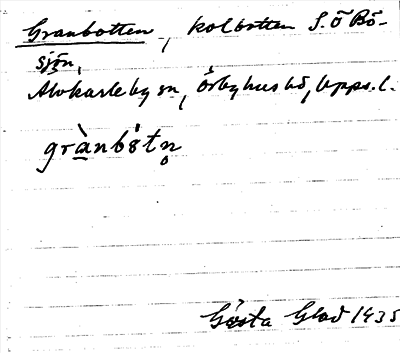 Granbotten, kolbotten S.Ö Bö-
sjön,
Älvkarleby sn, Örbyhus hd, Upps. l.
grànbòtn̥
Gösta Glad 1935